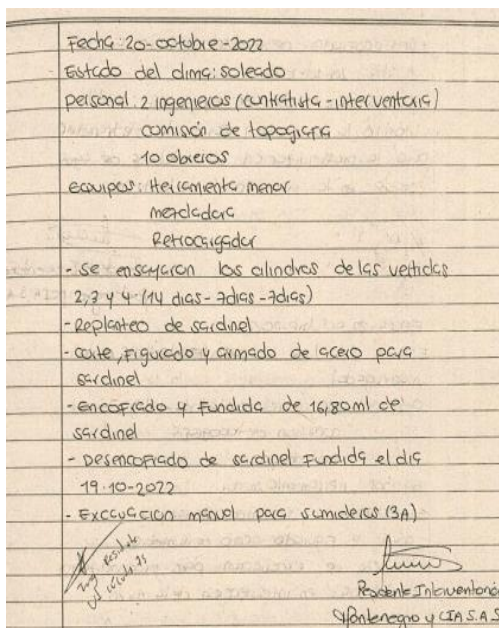 Fecha: 20-octubre-2022
Estado del clima: soleado
personal: 2 ingenieros (contratista-interventoria)
comisión de topografia
10 obreros
equipos: Herramienta menor
mezcladora
Retrocargador
- se ensayaron los cilindros de las vertidas
2,3 y 4 (14 dias - 7dias - 7dias)
- Replanteo de sardinel
- corte, figurado y armado de acero para
sardinel
- Encofrado y Fundida de 16,80ml de
sardinel
- Desencofrado de sardinel Fundida el dia
19-10-2022
- Excavacion manual para sumideros (3A)
Ing Residente
Residente Interventoria
Montenegro y CIA S.A.S